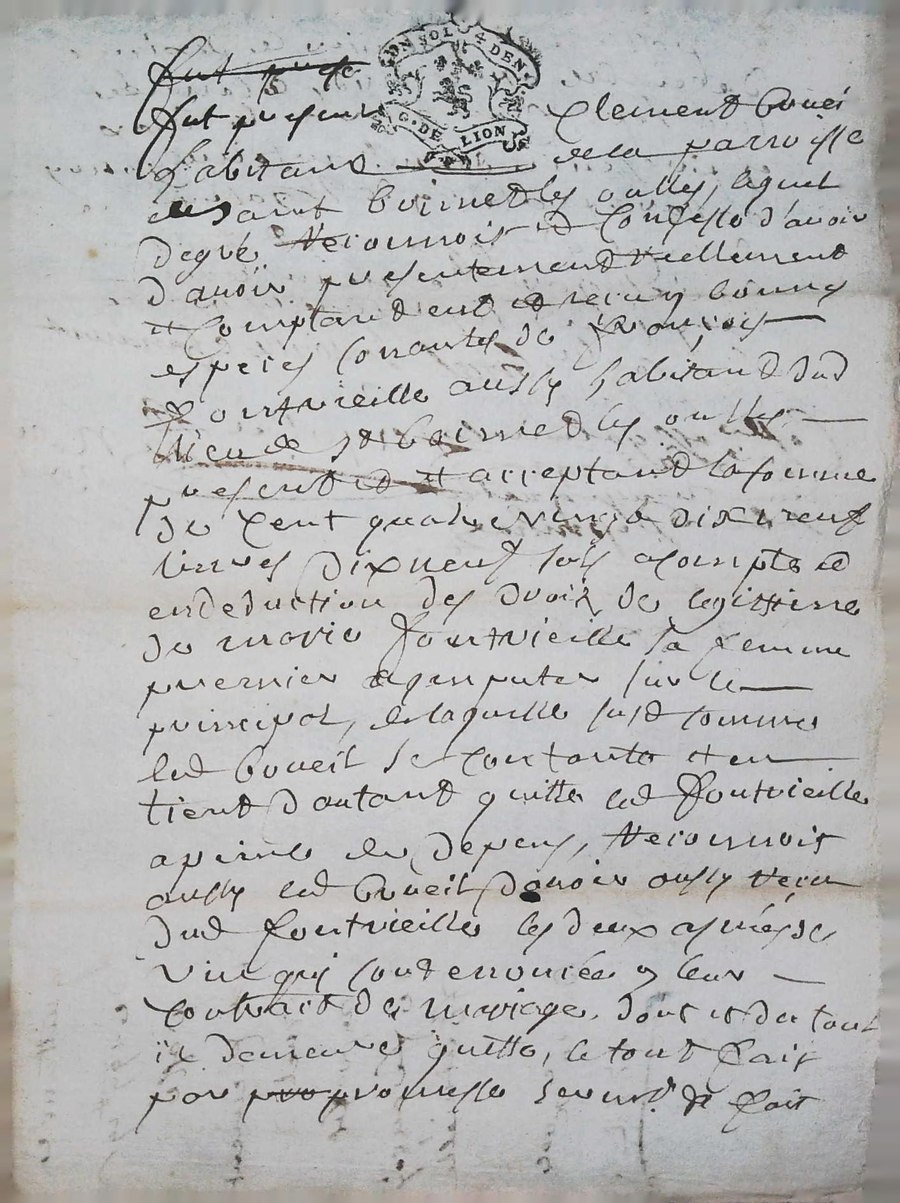 UN SOL 4 DEN
G. DE LION
fut present
fut present Clement boueil
habitant de la parroisse
de saint boinet les oulles, lequel
de gré Reconnois et Confesse d'avoir
d'avoir presentement Reellement
et Comptant eut et receu en bonnes
especes Corrantes de François
fontvieille aussy habitand dud
lieu de st boinet les oulles
present et et acceptand la somme
de Cent quatre vingt dix neuf
livres dixneuf sols acompte et
en deduction des droix de legittime
de marie fontvieille sa femme
premier a imputer sur le
principal, de laquelle susd somme
led boueil se Contante et en
tient d'autant quitte led fontvieille
a peine de depens, Reconnois
aussy led boueil davoir aussy Receu
dud fontvieille les deux asnées de
vin qui sont enoncée en leur
Contract de mariage, dont et du tout
il demeure quitte, le tout fait
par pro promesse serment de fait